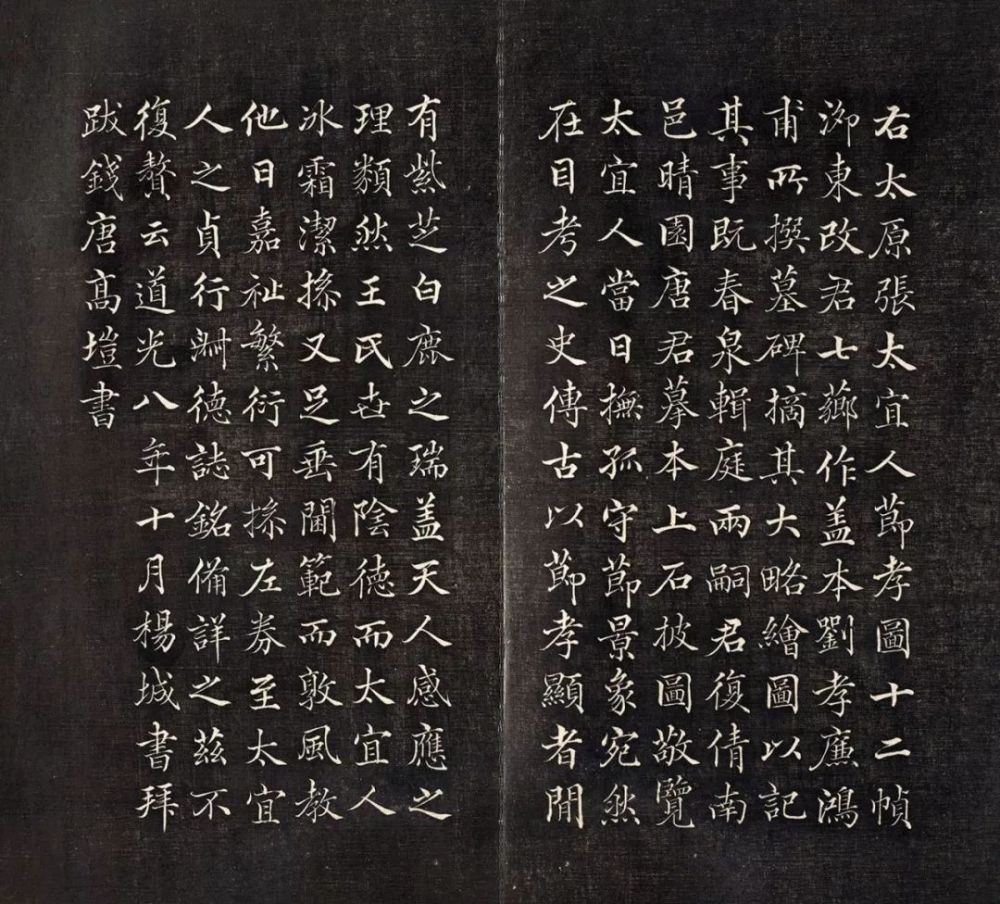 右太原張太宜人節孝圖十二幀
泖東改君七薌作盖本劉孝廉鴻
甫所撰墓碑摘其大略繪圖以記
其事既春泉輯庭兩嗣君復倩南
邑晴園唐君摹本上石披圖敬覽
太宜人當日撫孤守節景象宛然
在目考之史傳古以節孝顯者間
有紫芝白鹿之瑞盖天人感應之
理類然王氏世有陰德而太宜人
冰霜潔操又足垂閫範而敦風教
他日嘉祉繁衍可操左券至太宜
人之貞行淵德誌銘備詳之茲不
復贅云道光八年十月楊城書拜
跋錢唐高塏書